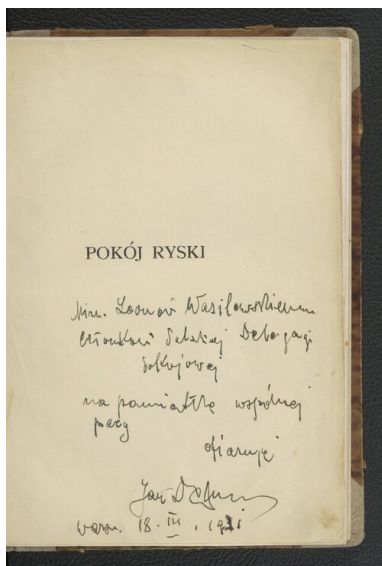 POKÓJ RYSKI
Min. Leonowi Wasilewskiemu
członkowi Polskiej Delegacji
Pokojowej
na pamiątkę wspólnej
pracy
ofiaruję
Jan Dąbski
Warsz. 18. III. 1931